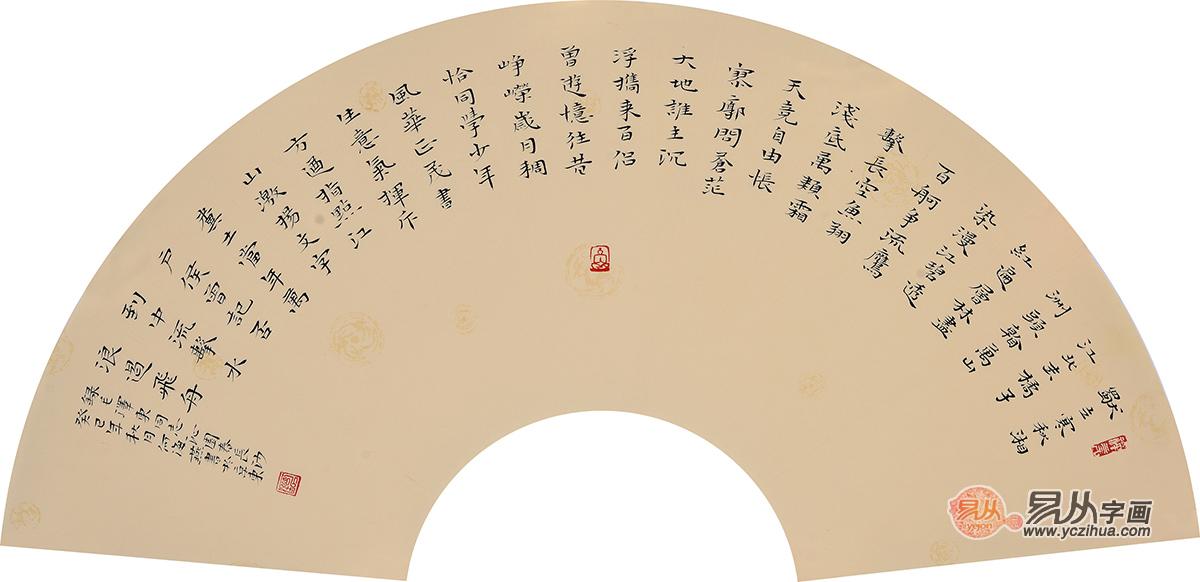 獨立寒秋湘
江北去橘子
洲頭看萬山
紅遍層林盡
染漫江碧透
百舸爭流鷹
擊長空魚翔
淺底萬類霜
天競自由悵
寥廓問蒼茫
大地誰主沉
浮攜來百侶
曾遊憶往昔
崢嶸歲月稠
恰同學少年
風華正茂書
生意氣揮斥
方遒指點江
山激揚文字
糞土當年萬
戶侯曾記否
到中流擊水
浪遏飛舟
錄毛澤東同志沁園春長沙
癸巳年秋月燕書於京東
易从字画
www.yczihua.com